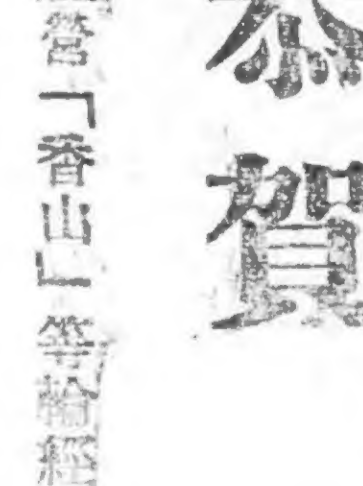 恭賀
營「香山」等輪經